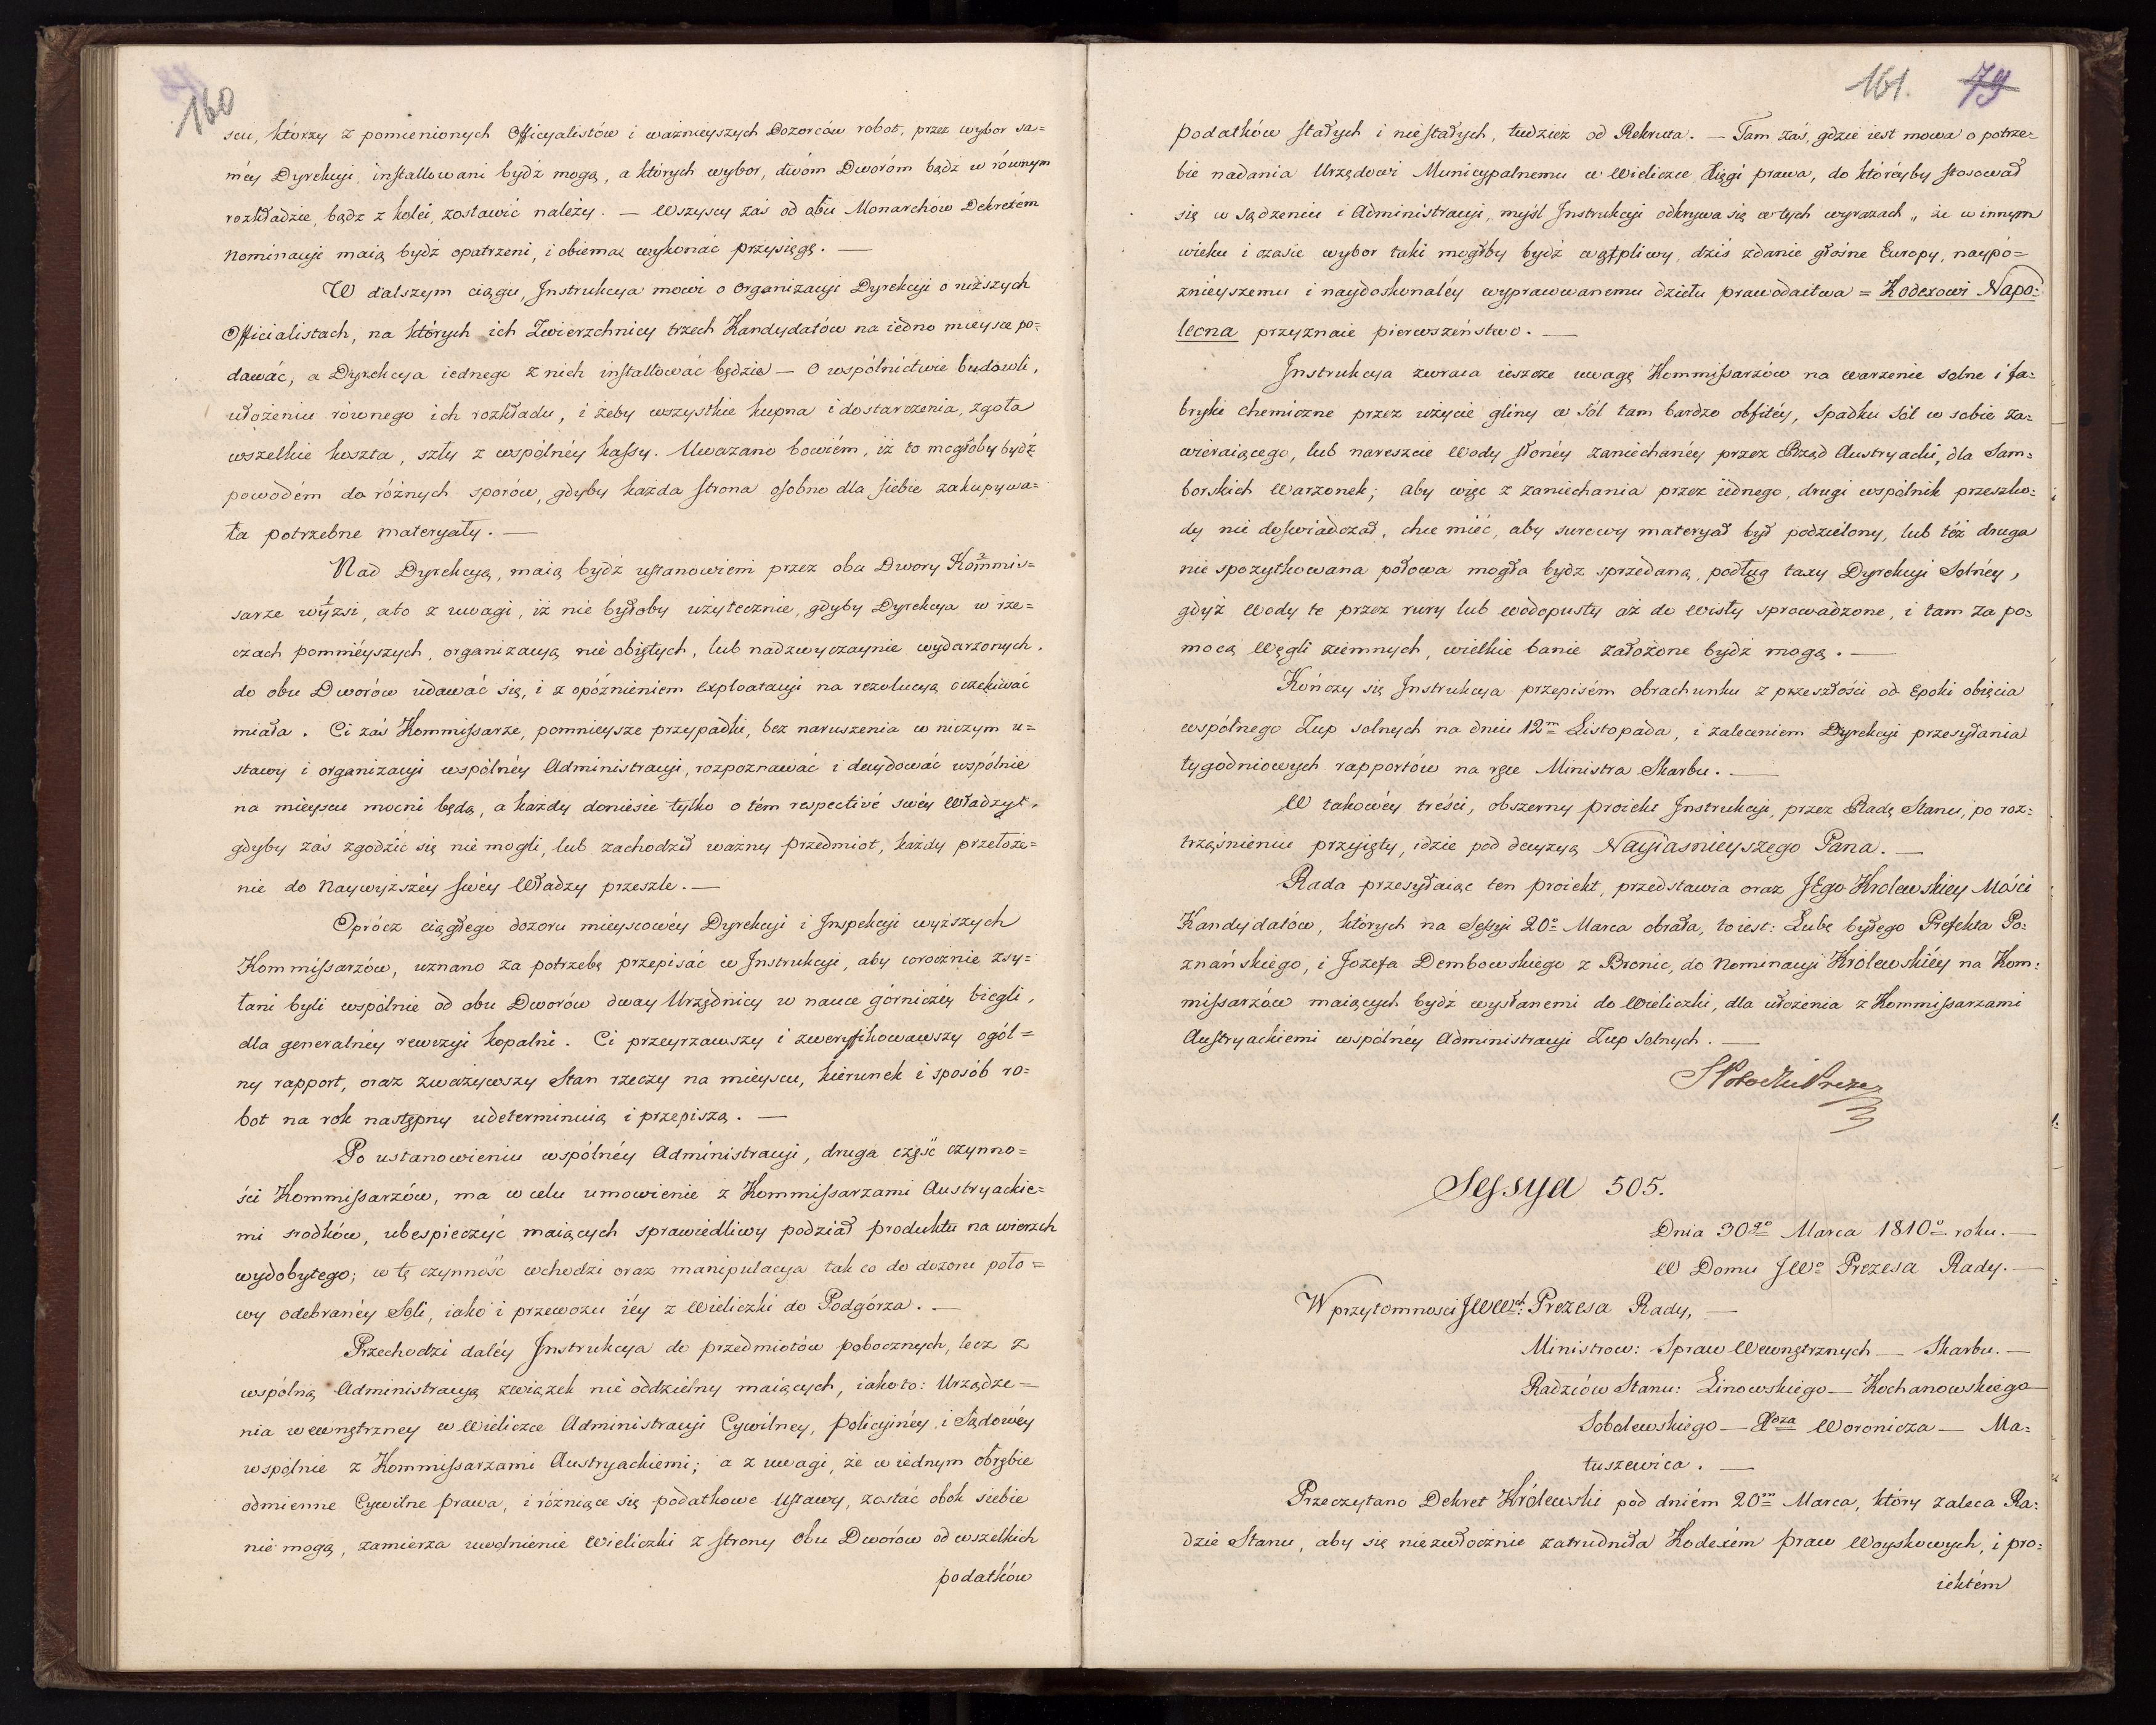 160
scu, którzy z pomienionych Officyalistów i ważnieyszych Dozorców robot, przez wybor sa=
méy Dyrekcyi, installowani bydź mogą, a których wybor, dwóm Dworóm bądź w równym
rozkładzie, bądz z kolei, zostawić należy. — Wszyscy zaś od obu Monarchów Dekretem
Nominacyi maią bydź opatrzeni, i obiema wykonać przysięgę. —
W dalszym ciągu, Instrukcya mowi o Organizacyi Dyrekcyi o niższych
Officialistach, na których ich Zwierzchnicy trzech Kandydatów na iedno mieysce po=
dawać, a Dyrekcya iednego z nich installować będzie — O wspólnictwie budowli,
ułożeniu równego ich rozkładu, i żeby wszystkie kupna i dostarczenia, zgoła
wszelkie koszta, szły z wspólnéy kassy. Uwazano bowiém, iż to mogłoby bydź
powodém do różnych sporów, gdyby każda strona osobno dla siebie zakupywa=
ła potrzebne materyały. —
Nad Dyrekcyą, maią bydź ustanowieni przez oba Dwory Kommis=
sarze wyżsi, a to z uwagi, iż nie byłoby użytecznie, gdyby Dyrekcya w rze=
czach pomniéyszych, organizacyą nie obiętych, lub nadzwyczaynie wydarzonych,
do obu Dworów udawać się, i z opóźnieniem exploatacyi na rezolucyą oczekiwać
miała. Ci zaś Kommissarze, pomnieysze przypadki, bez naruszenia w niczym u=
stawy i organizacyi wspólnéy Administracyi, rozpoznawać i decydować wspólnie
na mieyscu mocni będą, a każdy doniesie tylko o tém respectivé swéy Władzy,
gdyby zaś zgodzić się nie mogli, lub zachodził ważny przedmiot, każdy przełoże=
nie do Naywyższéy swéy Władzy przeszle. —
Oprócz ciągłego dozoru mieyscowéy Dyrekcyi i Inspekcyi wyższych
Kommissarzów, uznano za potrzebę przepisać w Instrukcyi, aby corocznie zsy=
łani byli wspólnie od obu Dworów dway Urzędnicy w nauce górniczéy biegli,
dla generalnéy rewizyi kopalni. Ci przeyrzawszy i zweryfikowawszy ogól=
ny rapport, oraz zważywszy Stan rzeczy na mieyscu, kierunek i sposób ro=
bot na rok następny udeterminuią i przepiszą. —
Po ustanowieniu wspólnéy Administracyi, druga część czynno=
ści Kommissarzów, ma w celu umowienie z Kommissarzami Austryackie=
mi srodków, ubespieczyć maiących sprawiedliwy podział produktu na wierzch
wydobytego; w tę czynność wchodzi oraz manipulacya tak co do dozoru poło=
wy odebranéy Soli, iako i przewozu iéy z Wieliczki do Podgórza. —
Przechodzi daléy Instrukcya do przedmiotów pobocznych, lecz z
wspólną Administracyą związek nie oddzielny maiących, iako to: Urządze=
nia wewnętrzney w Wieliczce Administracyi Cywilney, policyinéy i Sądowéy
wspólnie z Kommissarzami Austryackiemi; a z uwagi, że w iednym obrębie
odmienne Cywilne prawa, i różniące się podatkowe Ustawy, zostać obok siebie
nie mogą, zamierza uwolnienie Wieliczki z strony Obu Dworów od wszelkich
podatków
161. 79
podatków stałych i niestałych, tudzież od Rekruta. — Tam zaś, gdzie iest mowa o potrze=
bie nadania Urzędowi Municypalnemu w Wieliczce Xięgi prawa, do któréyby stosował
się w sądzeniu i Administracyi, myśl Instrukcyi odkrywa się w tych wyrazach „ że w innym
wieku i czasie wybor taki mogłby bydź wątpliwy, dziś zdanie głośne Europy, naypó=
znieyszemu i naydoskonaléy wyprawowanemu dziełu prawodastwa = Kodexowi Napo=
leona przyznaie pierwszeństwo. —
Instrukcya zwraca ieszcze uwagę Kommissarzów na warzenie solne i fa=
bryki chemiczne przez użycie gliny w sól tam bardzo obfitéy, spadku sól w sobie za=
wieraiącego, lub nareszcie Wody słonéy zaniechanéy przez Rząd Austryacki, dla Sam=
borskich Warzonek; aby więc z zaniechania przez iednego, drugi wspólnik przeszko=
dy nie doświadczał, chce mieć, aby surowy materyał był podzielony, lub téż druga
nie spozytkowana połowa mogła bydz sprzedaną, podług taxy Dyrekcyi Solnéy,
gdyż Wody te przez rury lub wodopusty aż do Wisły sprowadzone, i tam za po=
mocą Węgli ziemnych, wielkie banie założone bydź mogą. —
Kończy się Instrukcya przepisém obrachunku z przeszłości od Epoki obięcia
wspólnego Żup solnych na dniu 12m Listopada, i zaleceniem Dyrekcyi przesyłania
tygodniowych rapportów na ręce Ministra Skarbu. —
W takowéy treści, obszerny proiekt Instrukcyi, przez Radę Stanu, po roz=
trząśnieniu przyięty, idzie pod decyzyą Nayiasnieyszego Pana. —
Rada przesyłaiąc ten proiekt, przedstawia oraz JEgo Krolewskiey Mości
Kandydatów, których na Sessyi 20o Marca obrała, to iest: Łubę byłego Prefekta Po=
znańskiego, i Jozefa Dembowskiego z Bronic, do Nominacyi Królewskiéy na Kom=
missarzów maiących bydź wysłanemi do Wieliczki, dla ułożenia z Kommissarzami
Austryackiemi wspólnéy Administracyi Żup Solnych. —
Sessya 505.
Dnia 30go Marca 1810o roku. —
W Domu JWo Prezesa Rady. —
W przytomności JWWch: Prezesa Rady, —
Ministrow: Spraw Wewnętrznych — Skarbu. —
Radzców Stanu: Linowskiego — Kochanowskiego —
Sobolewskiego — Xdza Woronicza — Ma=
tuszewica. —
Przeczytano Dekret Królewski pod dniém 20m Marca, który zaleca Ra=
dzie Stanu, aby się niezwłocznie zatrudniła Kodexém praw Woyskowych, i pro=
iektém